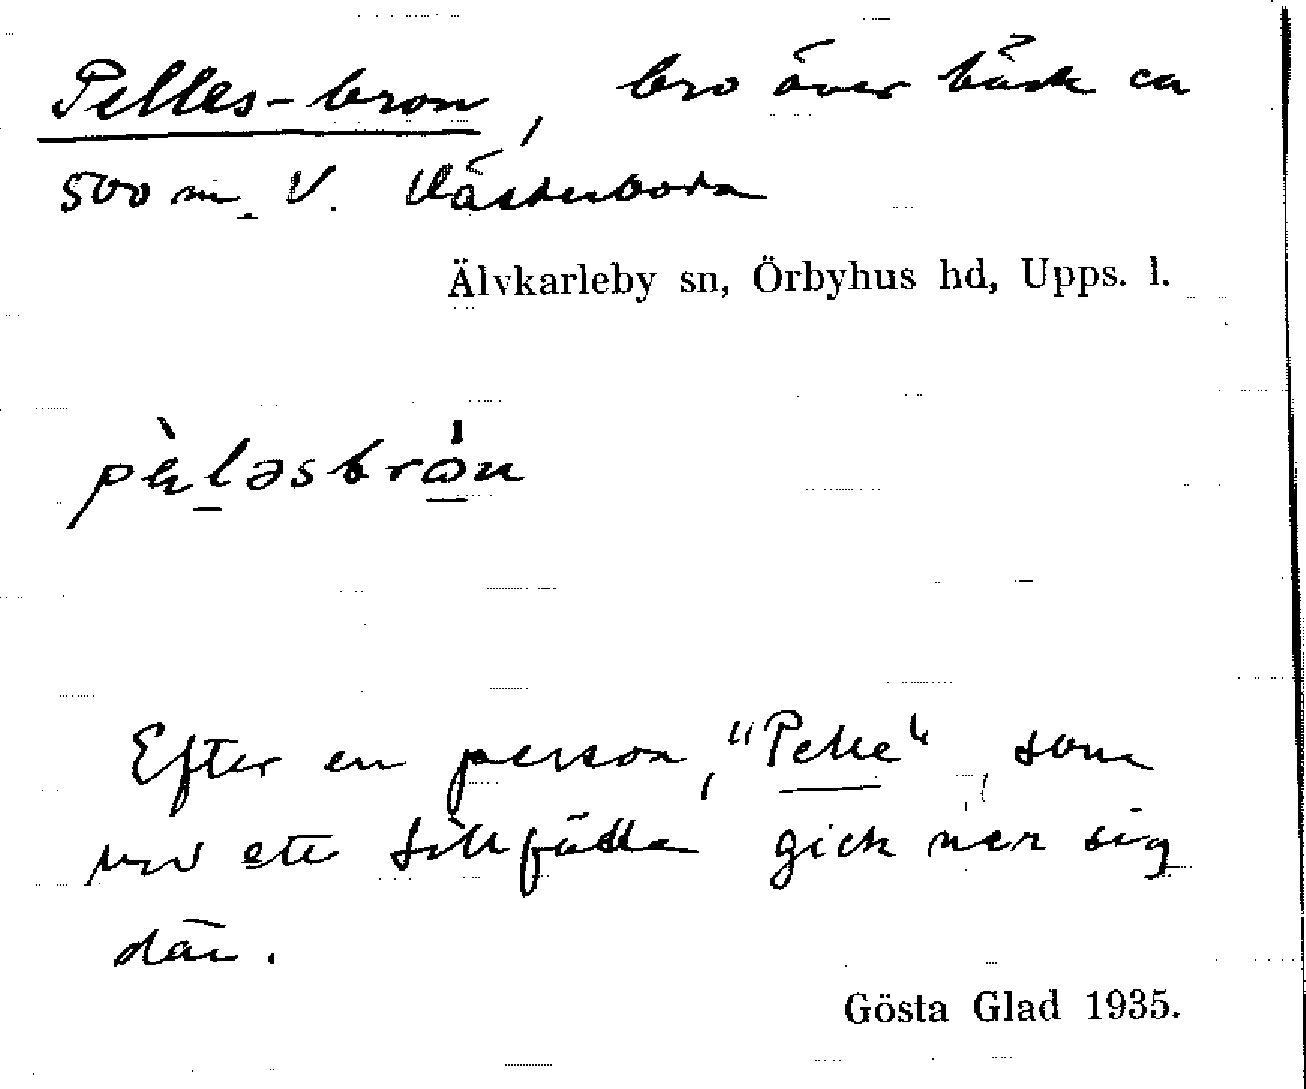 Pelles-bron, bro över bäck ca
500 m V. Västerboda
Älvkarleby sn, Örbyhus hd, Upps. l.
pὲləsbrɷ́n
Efter en person, "Pelle", som
vid ett tillfälle gick ner sig
där.
Gösta Glad 1935.